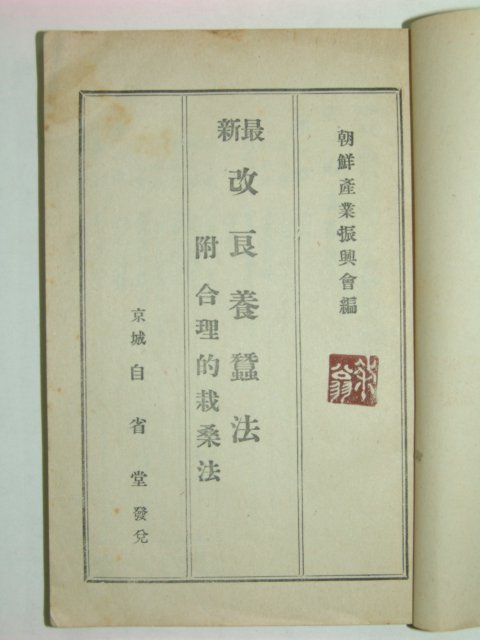 朝鮮產業振興會編
最新
改良養蠶法
附 合理的栽桑法
京城自省堂發兌